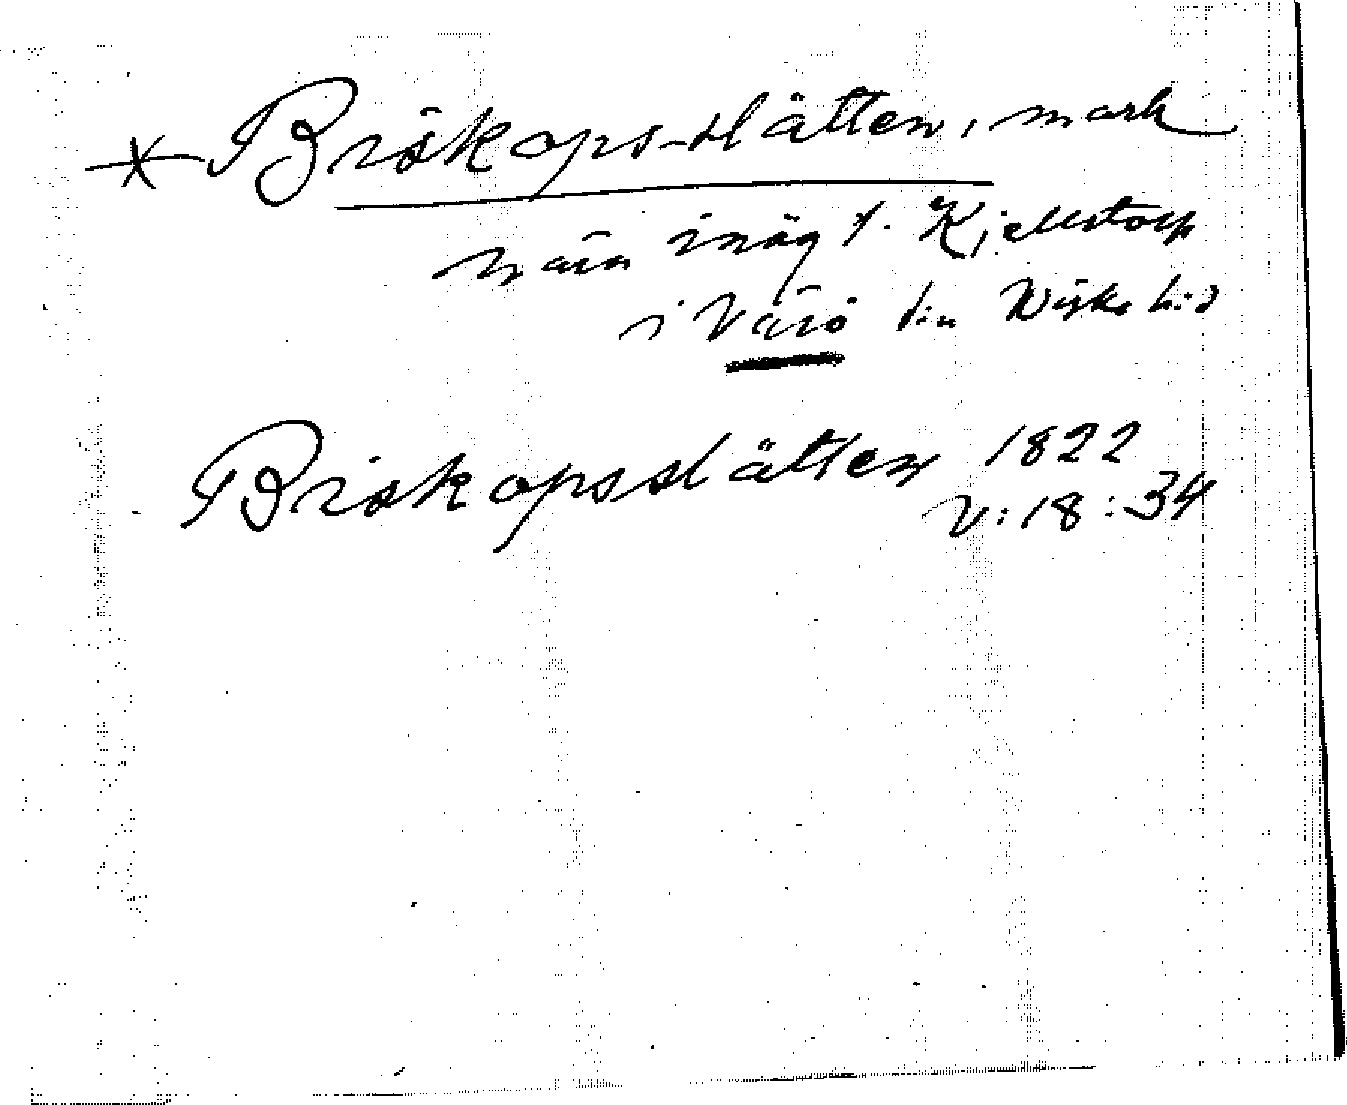 * Biskops-slätten, mark
nära inäg t. Kjellstorp
i Värö s:n Viske h:d
Biskopsslätten 1822
V:18:34